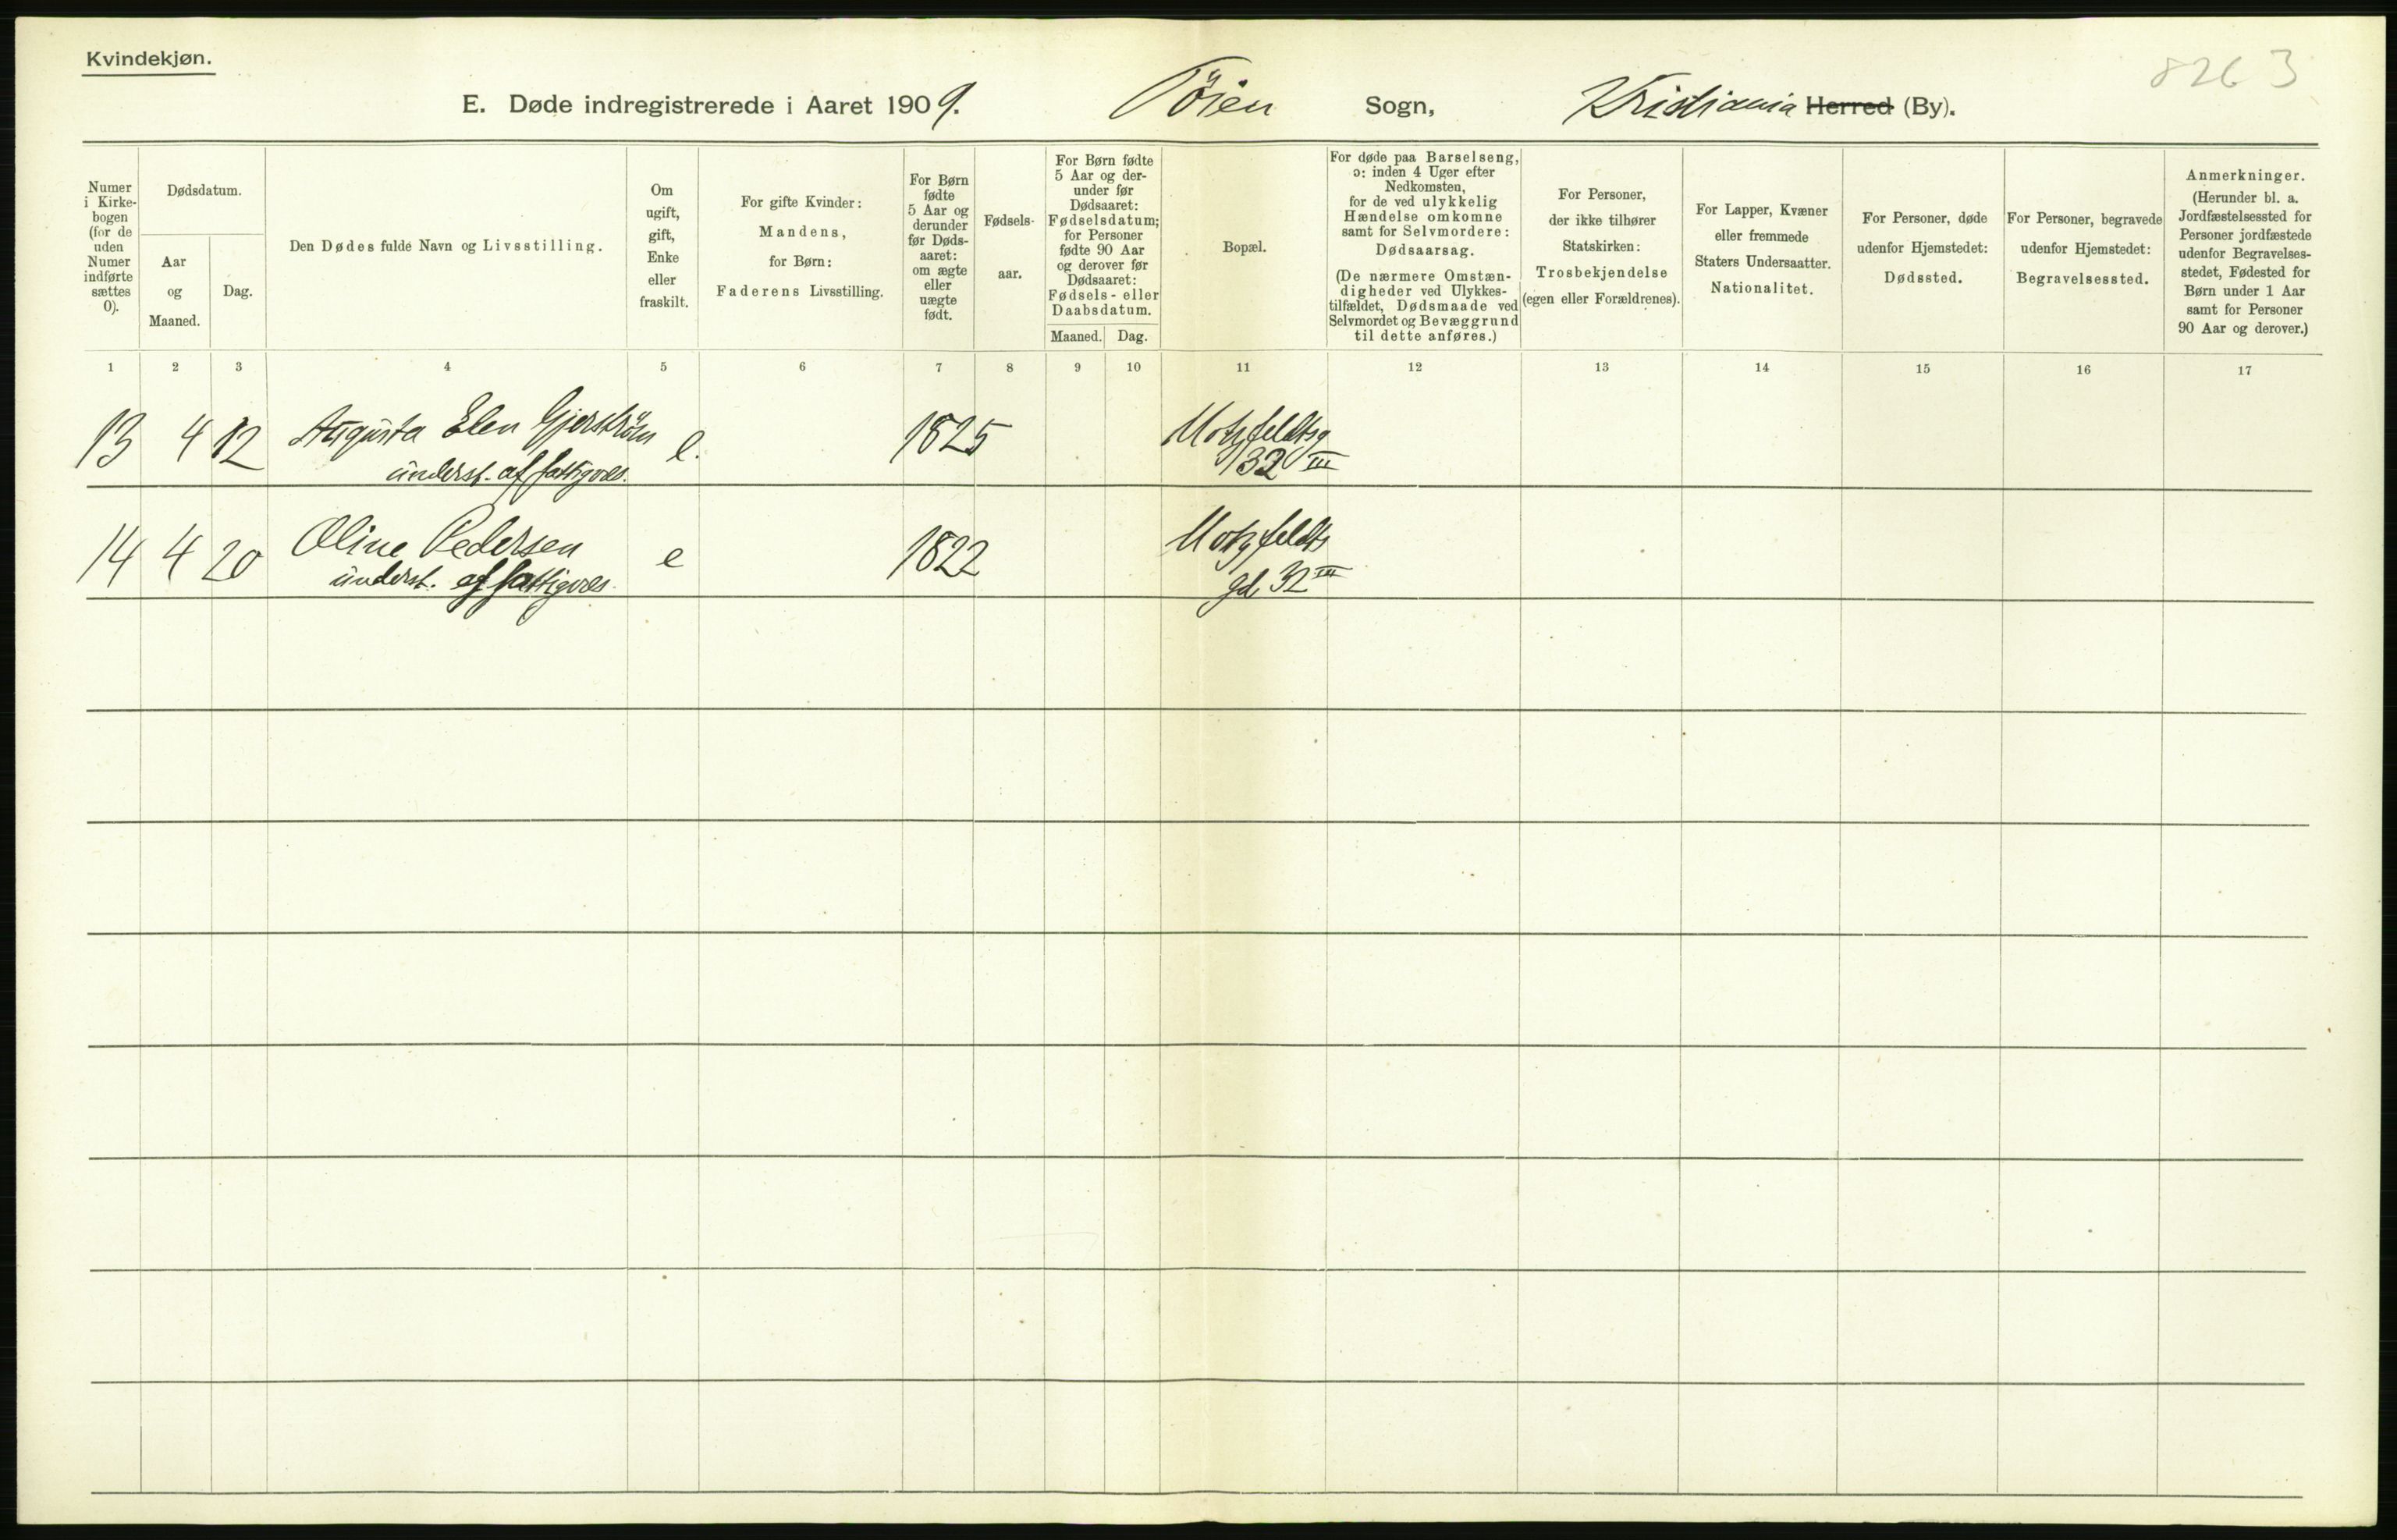 Kvindekjøn.
8263
E. Døde indregistrerede i Aaret 1909. Töien Sogn, Kristiania Herred (By).
Numer i Kirkebogen (for de uden Numer indførte sættes 0).
Dødsdatum.
Aar og Maaned.
Dag.
Den Dødes fulde Navn og Livsstilling.
Om ugift, gift, Enke eller fraskilt.
For gifte Kvinder: Mandens, for Børn: Faderens Livsstilling.
For Børn fødte 5 Aar og derunder før Dødsaaret: om ægte eller uægte født.
Fødselsaar.
For Børn fødte 5 Aar og derunder før Dødsaaret: Fødselsdatum; for Personer fødte 90 Aar og derover før Dødsaaret: Fødsels- eller Daabsdatum.
Maaned. Dag.
Bopæl.
For døde paa Barselseng, ɔ: inden 4 Uger efter Nedkomsten, for de ved ulykkelig Hændelse omkomne samt for Selvmordere: Dødsaarsag.
(De nærmere Omstændigheder ved Ulykkestilfældet, Dødsmaade ved Selvmordet og Bevæggrund til dette anføres.)
For Personer, der ikke tilhører Statskirken: Trosbekjendelse (egen eller Forældrenes).
For Lapper, Kvæner eller fremmede Staters Undersaatter. Nationalitet.
For Personer, døde udenfor Hjemstedet: Dødssted.
For Personer, begravede udenfor Hjemstedet: Begravelsessted.
Anmerkninger.
(Herunder bl. a. Jordfæstelsessted for Personer jordfæstede udenfor Begravelsesstedet, Fødested for Børn under 1 Aar samt for Personer 90 Aar og derover.)
1 2 3 4 5 6 7 8 9 10 11 12 13 14 15 16 17
13 4 12 Augusta Elen Gjerström e. 1825 Motzfeldtsg
underst. af fattigvæs. 32 III
14 4 20 Oline Pedersen e 1822 Motzfeldts
underst. af fattigvæs. gd. 32 III